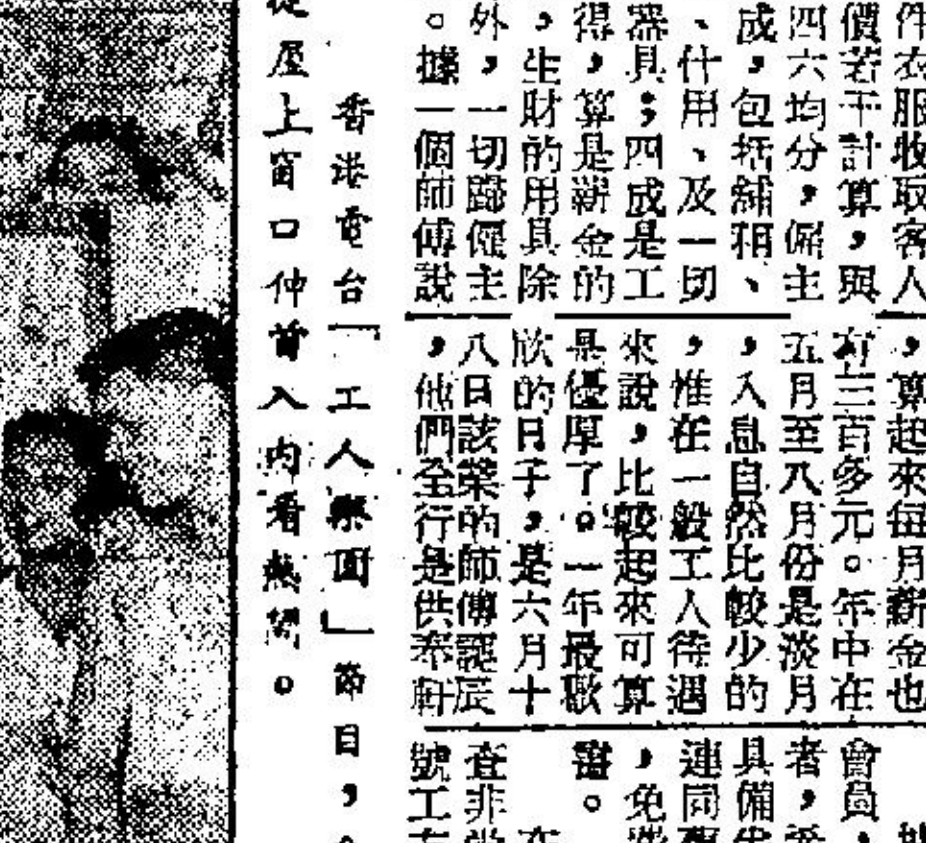 件衣服收取客人
價若干計算，與
四六均分，僱主
成，包括舖租、
、什用、及一切
器具；四成是工
得，算是薪金的
，生財的用具除
外，一切歸僱主
。據一個師傅說
，算起來每月薪金也
有三百多元。年中在
五月至八月份是淡月
，入息自然比較少的
，惟在一般工人待遇
來說，比較起來可算
是優厚了。一年最歡
欣的日子，是六月十
八日該業的師傅誕辰
，他們全行是供奉軒
會員，
者，
具備
連同
，免
。
查非
號工
香港電台「工人樂園」節目，
從屋上窗口伸首入內看熱鬧。